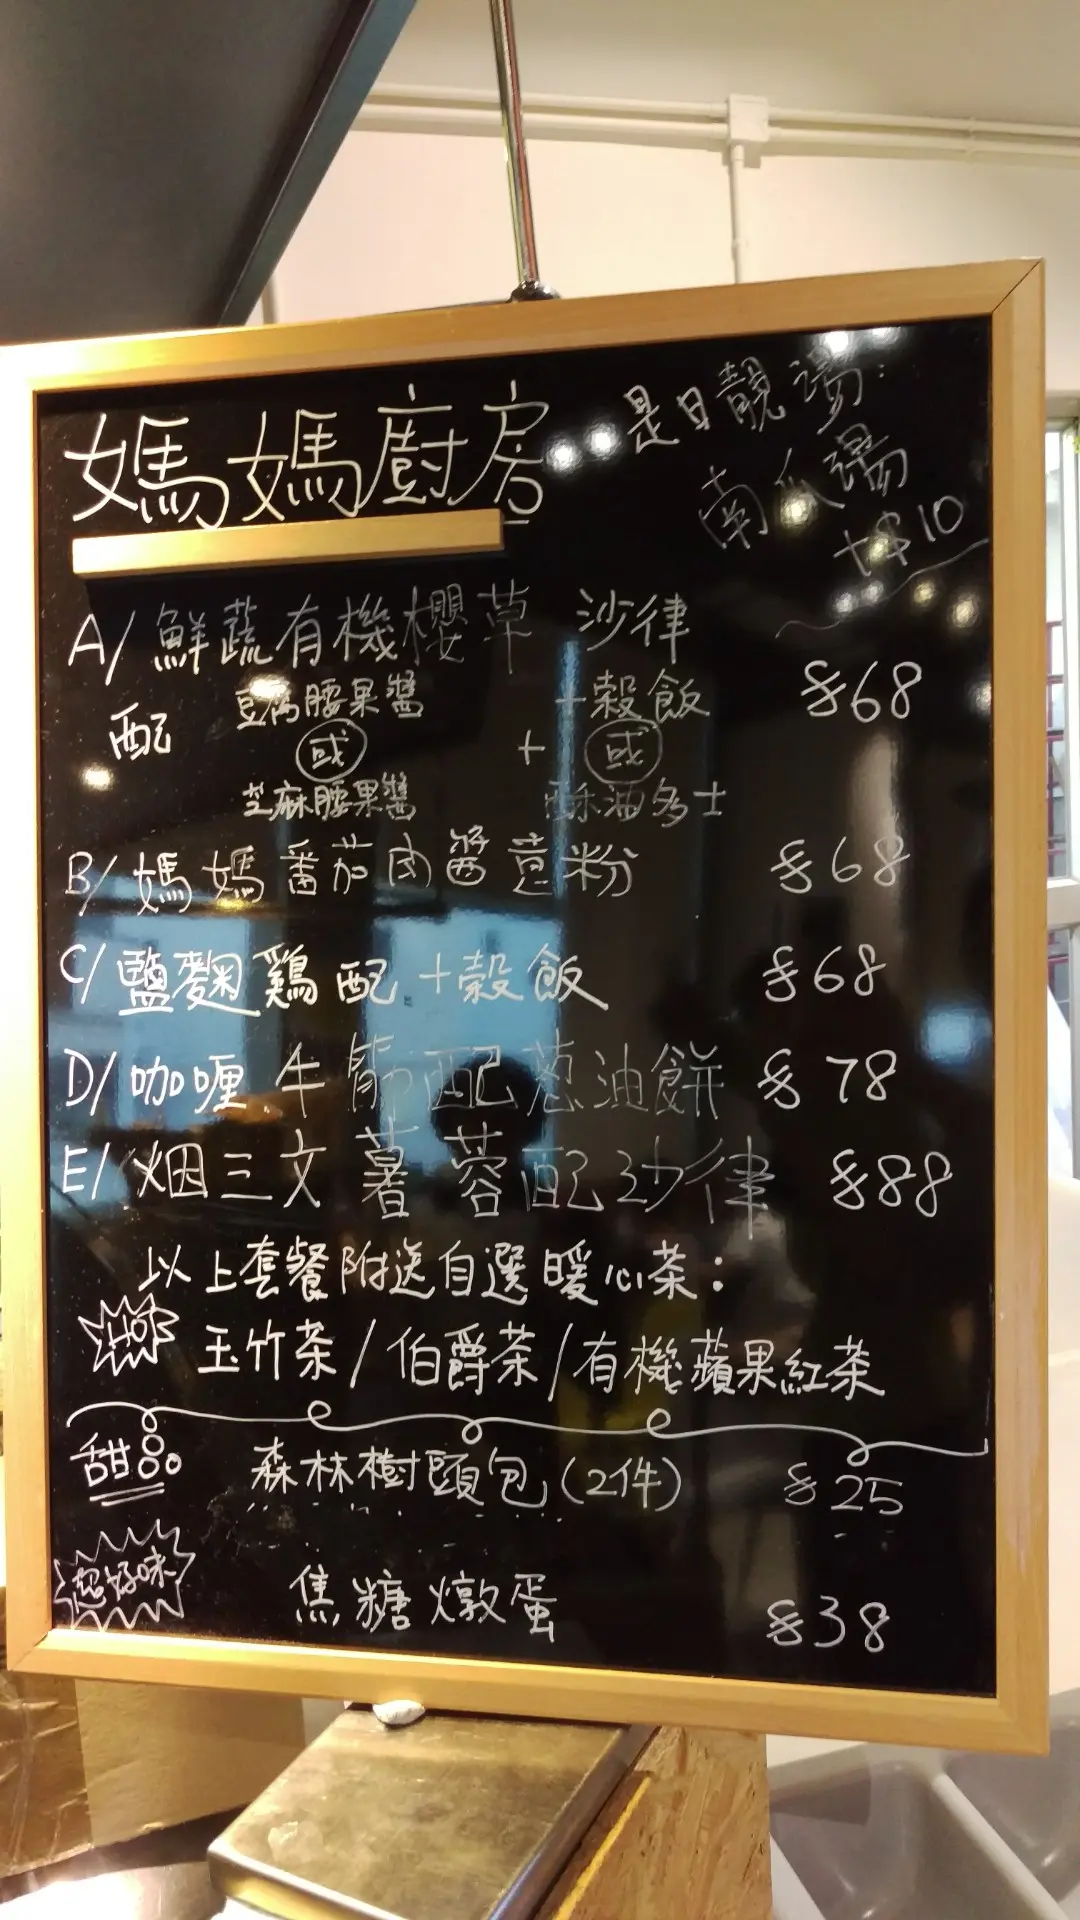 媽媽廚房
是日靚湯:
南瓜湯
+$10
A/ 鮮蔬有機櫻草 沙律
$68
配
豆腐腰果醬
或
芝麻腰果醬
+
十穀飯
或
酥油多士
B/ 媽媽番茄肉醬意粉 $68
C/ 鹽麴鷄配十穀飯 $68
D/ 咖喱牛筋配葱油餅 $78
E/ 烟三文薯蓉配沙律 $88
以上套餐附送自選暖心茶:
HOT
玉竹茶/伯爵茶/有機蘋果紅茶
甜品 森林樹頭包(2件) $25
超好味
焦糖燉蛋 $38